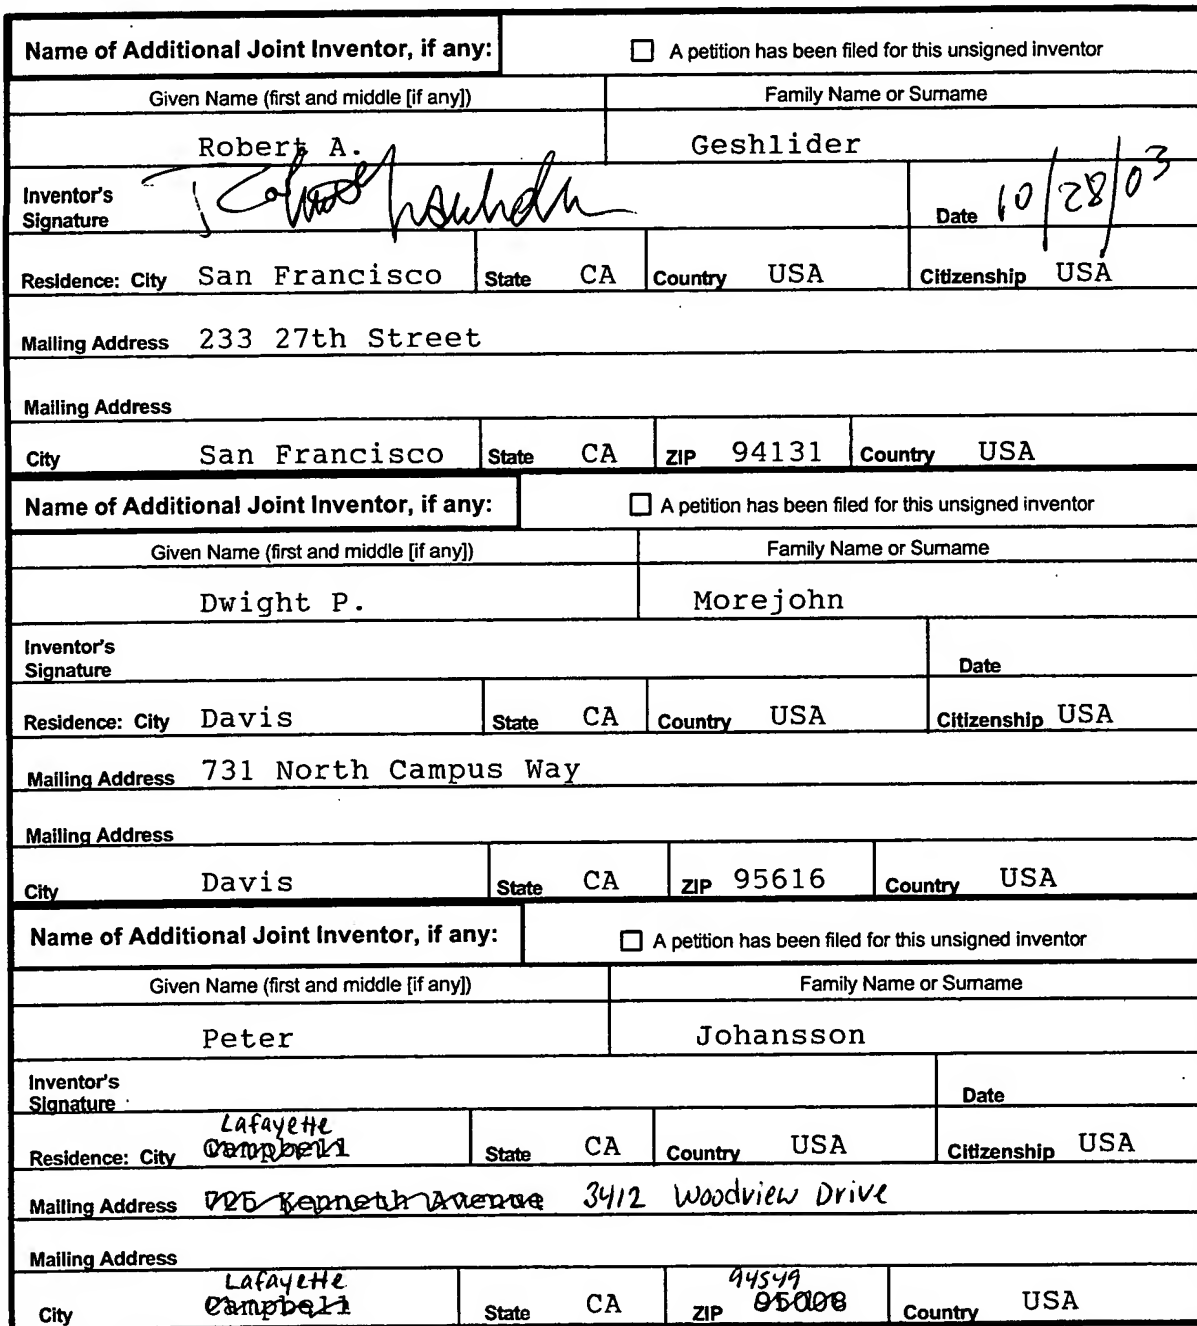 Name of Additional Joint Inventor, if any: ☐ A petition has been filed for this unsigned inventor
Given Name (first and middle [if any]) Family Name or Surname
Robert A. Geshlider
Inventor's
Signature Date 10/28/03
Residence: City San Francisco State CA Country USA Citizenship USA
Mailing Address 233 27th Street
Mailing Address
City San Francisco State CA ZIP 94131 Country USA
Name of Additional Joint Inventor, if any: ☐ A petition has been filed for this unsigned inventor
Given Name (first and middle [if any]) Family Name or Surname
Dwight P. Morejohn
Inventor's
Signature Date
Residence: City Davis State CA Country USA Citizenship USA
Mailing Address 731 North Campus Way
Mailing Address
City Davis State CA ZIP 95616 Country USA
Name of Additional Joint Inventor, if any: ☐ A petition has been filed for this unsigned inventor
Given Name (first and middle [if any]) Family Name or Surname
Peter Johansson
Inventor's
Signature Date
Lafayette
Residence: City Campbell State CA Country USA Citizenship USA
Mailing Address 725 Kenneth Avenue 3412 Woodview Drive
Mailing Address
Lafayette 94549
City Campbell State CA ZIP 95008 Country USA